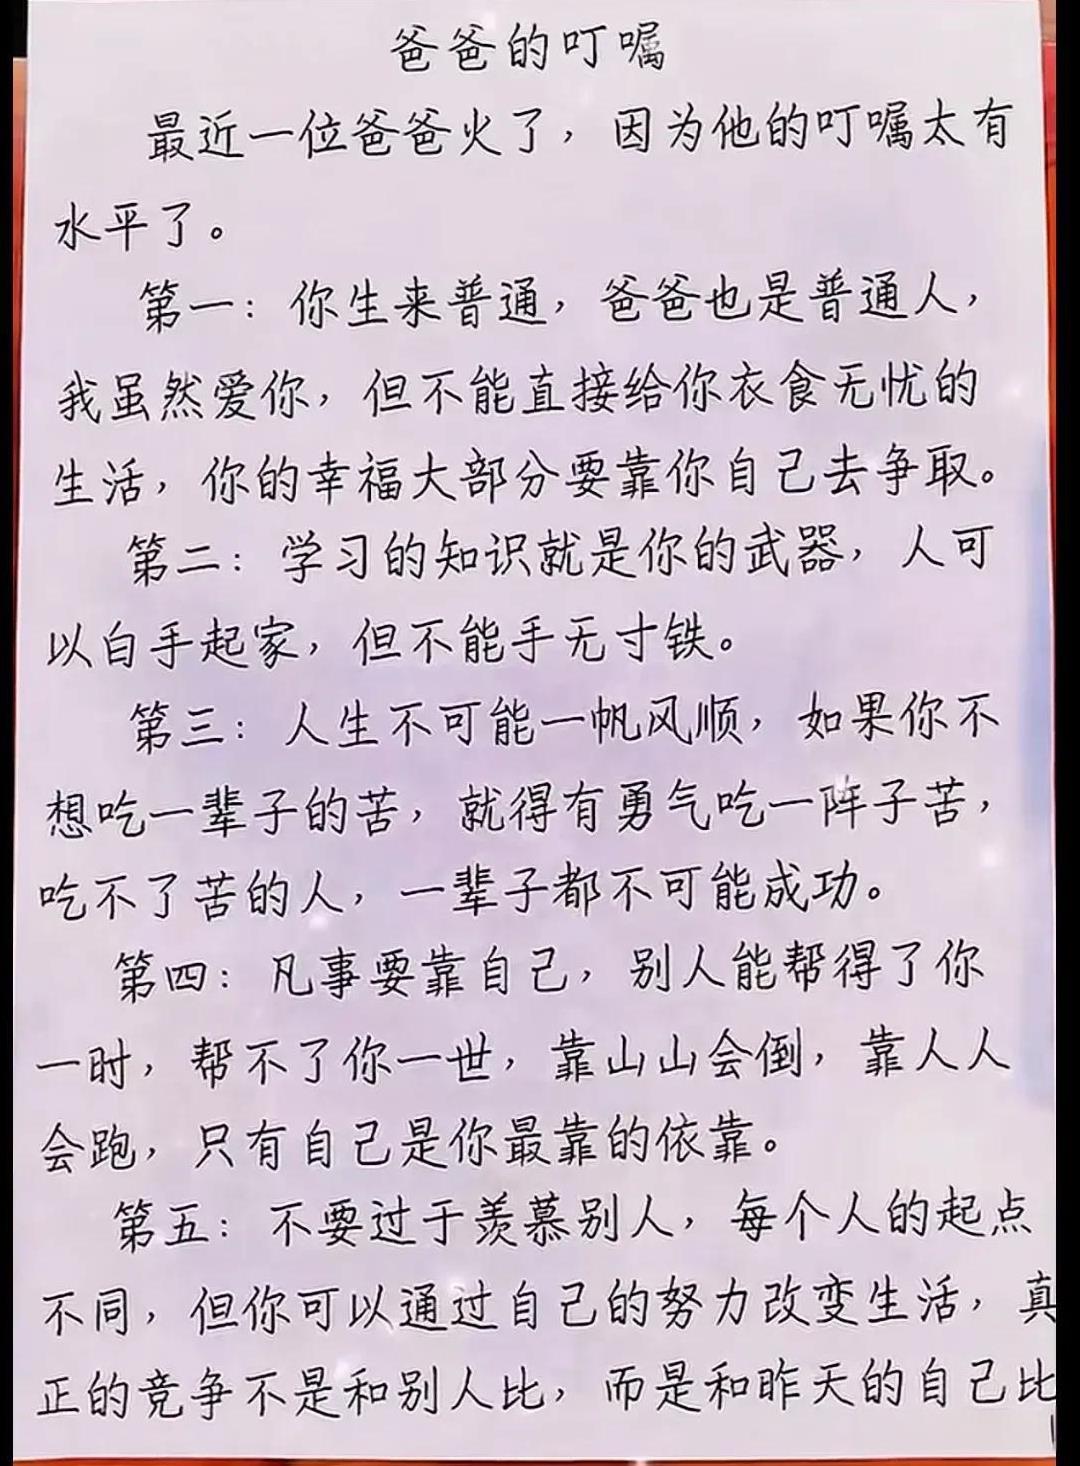 爸爸的叮嘱
最近一位爸爸火了，因为他的叮嘱太有
水平了。
第一：你生来普通，爸爸也是普通人，
我虽然爱你，但不能直接给你衣食无忧的
生活，你的幸福大部分要靠你自己去争取。
第二：学习的知识就是你的武器，人可
以白手起家，但不能手无寸铁。
第三：人生不可能一帆风顺，如果你不
想吃一辈子的苦，就得有勇气吃一阵子苦，
吃不了苦的人，一辈子都不可能成功。
第四：凡事要靠自己，别人能帮得了你
一时，帮不了你一世，靠山山会倒，靠人人
会跑，只有自己是你最靠的依靠。
第五：不要过于羡慕别人，每个人的起点
不同，但你可以通过自己的努力改变生活，真
正的竞争不是和别人比，而是和昨天的自己比